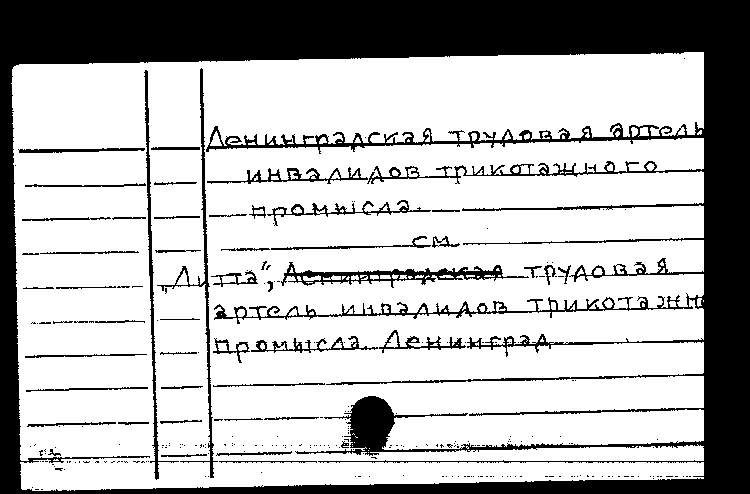 Ленинградская трудовая артель
инвалидов трикотажного
промысла.
см.
„Литта“, Ленинградская трудовая
артель инвалидов трикотажн
промысла. Ленинград